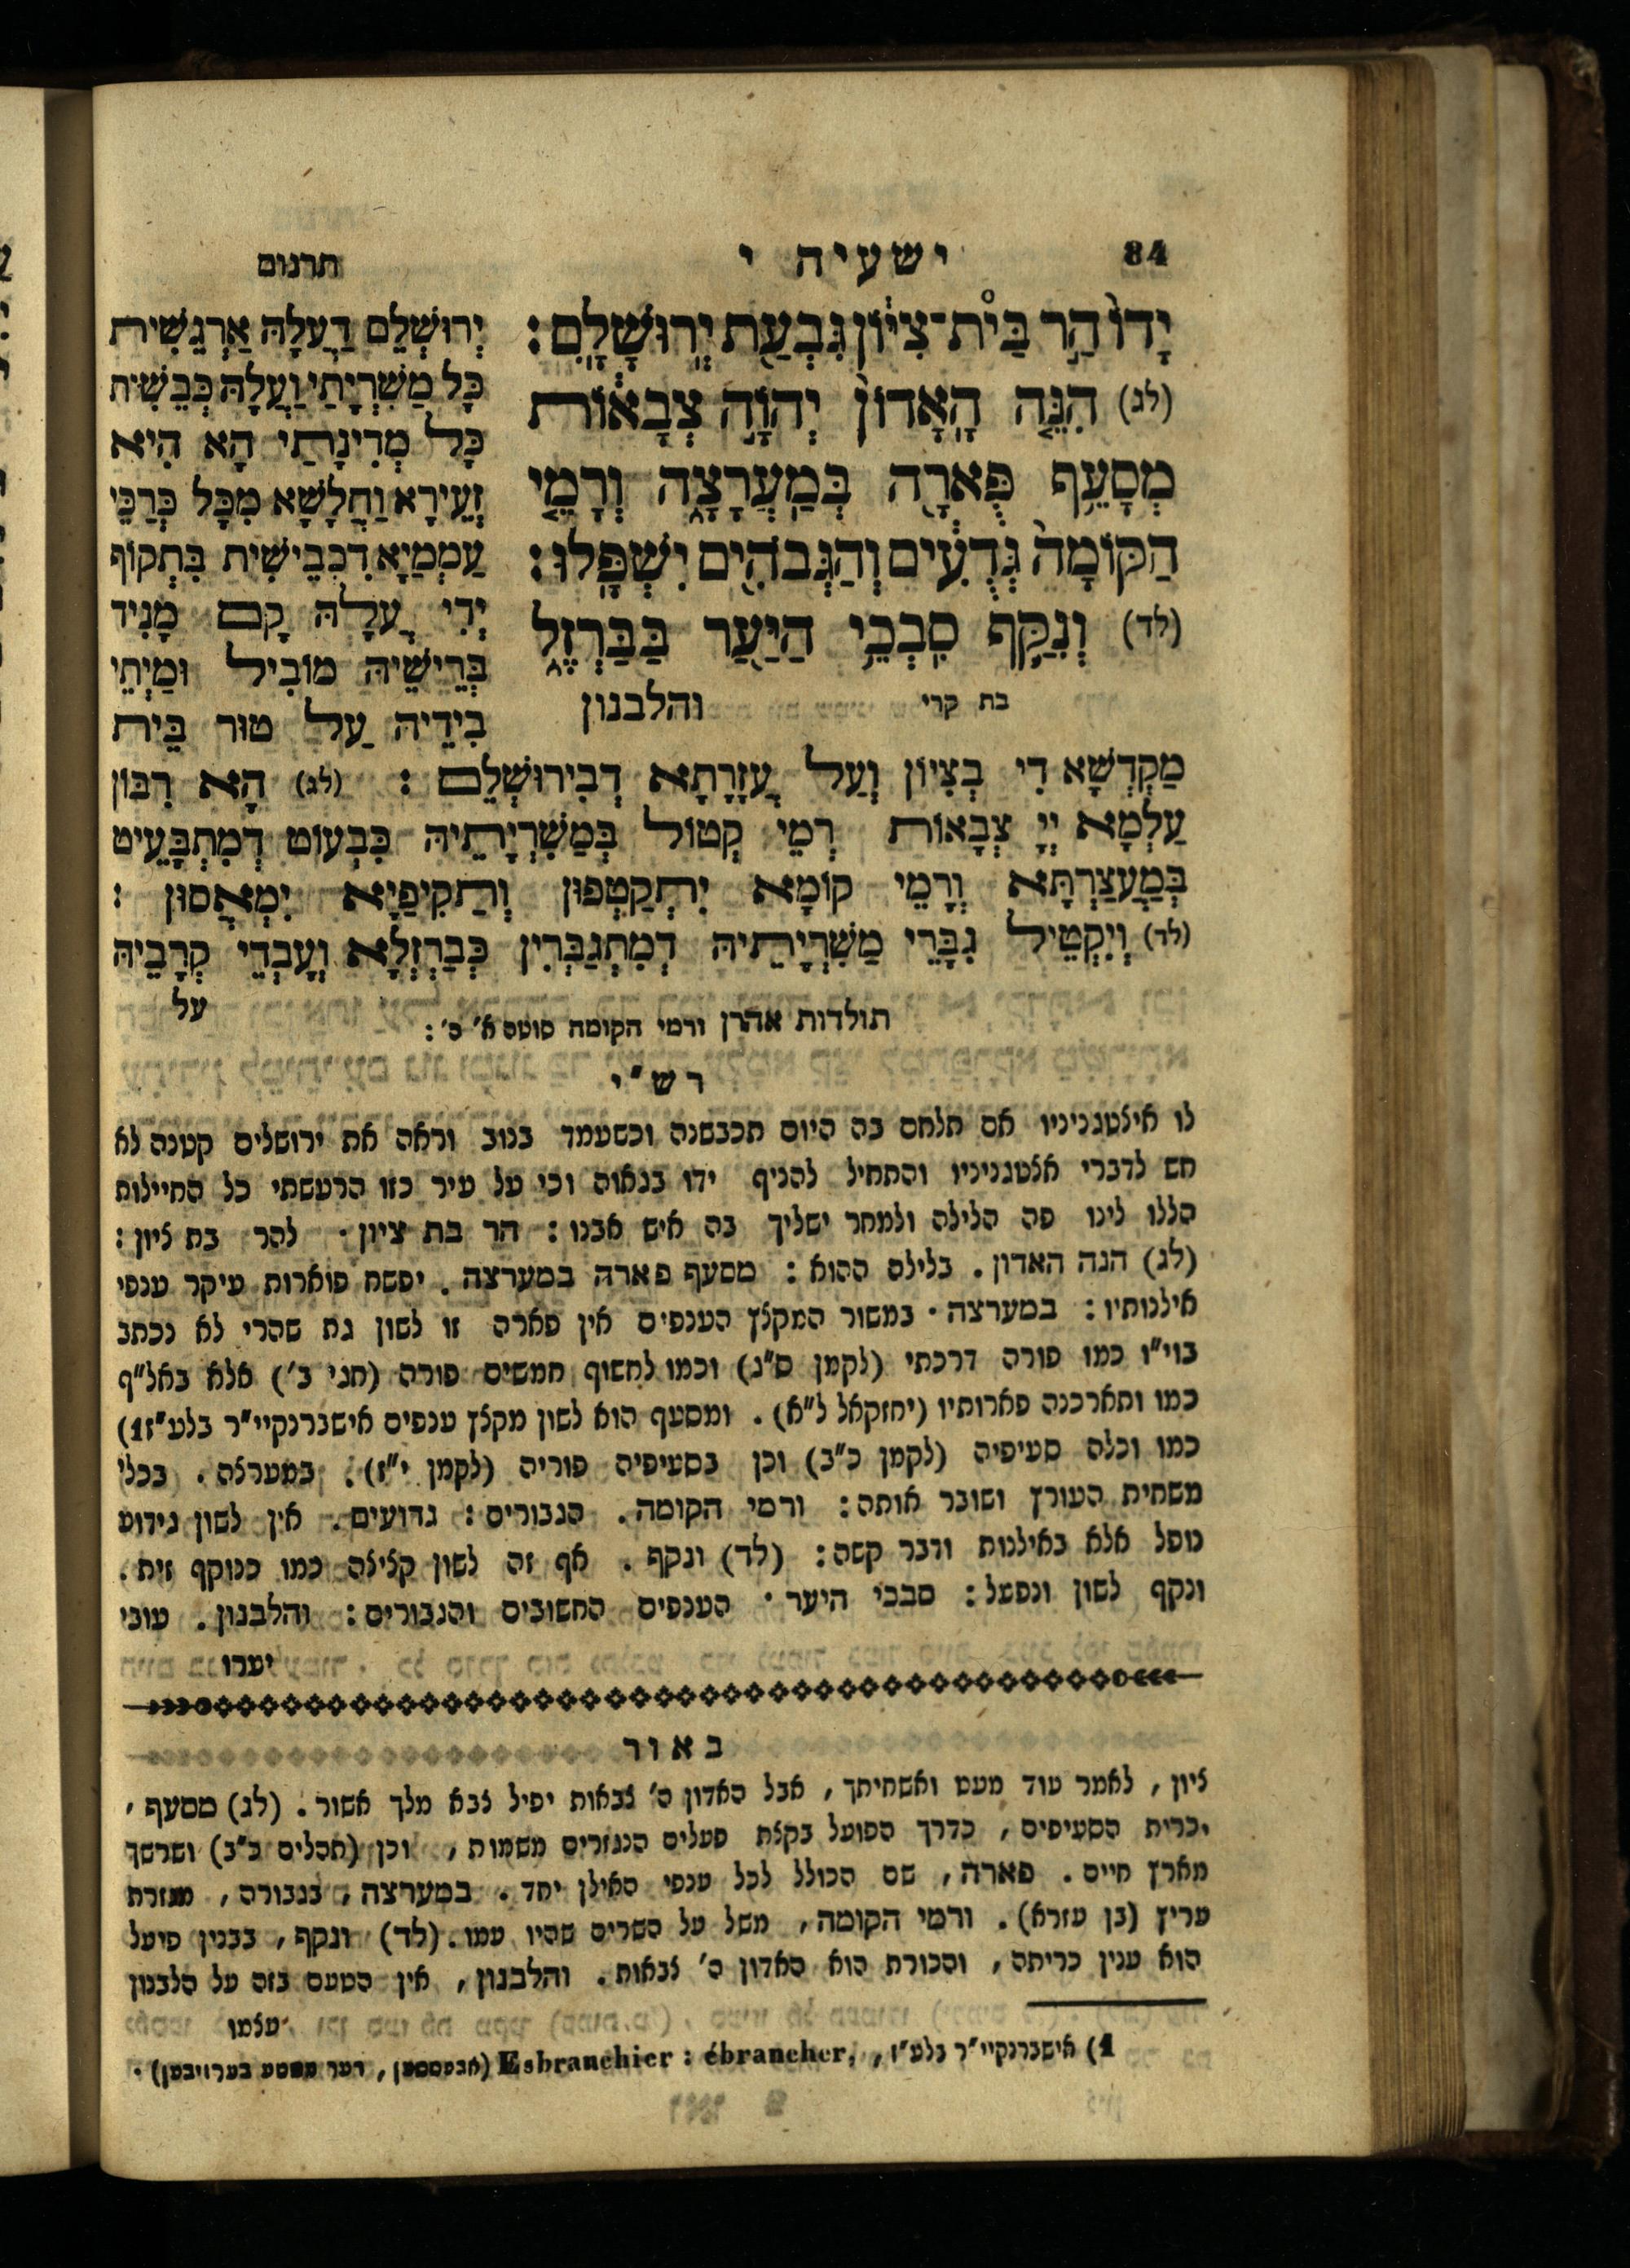 84
ישעיה י
תרגום
יָדוֹ֙ הַ֣ר בֵּית־צִיּ֔וֹן גִּבְעַ֖ת יְרֽוּשָׁלָֽםִ׃
(לג) הִנֵּ֤ה הָֽאָדוֹן֙ יְהוָ֣ה צְבָא֔וֹת
מְסָעֵ֥ף פֻּארָ֖ה בְּמַֽעֲרָצָ֑ה וְרָמֵ֤י
הַקּוֹמָה֙ גְּדֻעִ֔ים וְהַגְּבֹהִ֖ים יִשְׁפָּֽלוּ׃
(לד) וְנִקַּ֛ף סִֽבְכֵ֥י הַיַּ֖עַר בַּבַּרְזֶ֑ל
בת קרי
והלבנון
יְרוּשְׁלֵם דַּעֲלָהּ אַרְגֵשִׁית
כָּל מַשִׁרְיָתַי וַעֲלָהּ כְּבֵשִׁית
כָּל מְדִינָתַי הָא הִיא
זְעֵירָא וַחֲלָשָׁא מִכָּל כְּרַכֵּי
עַמְמַיָא דִכְבֵישִׁית בִּתְקוֹף
יְדִי עֲלָהּ קָם מָנִיד
בְּרֵישֵׁיהּ מוֹבִיל וּמַיְתֵי
בִידֵיהּ עַל טוּר בֵּית
מַקְדְשָׁא דִי בְצִיוֹן וְעַל עֲזָרָתָא דְבִירוּשְׁלֵם : (לג) הָא רִבּוֹן
עַלְמָא יְיָ צְבָאוֹת רְמֵי קְטוֹל בְּמַשִׁרְיָתֵיהּ כִּבְעוֹט דְמִתְבָּעֵיט
בְּמַעֲצַרְתָּא וְרָמֵי קוֹמָא יִתְקַטְפוּן וְתַקִיפַיָא יִמְאֲסוּן :
(לד) וְיִקְטֵיל גִבָּרֵי מַשִׁרְיָתֵיהּ דְמִתְגַבְּרִין כְּבַרְזְלָא וְעָבְדֵי קְרָבֵיהּ
על
תולדות אהרן ורמי הקומה סוטה א׳ ה׳ :
רש"י
לו איצטגניניו אם תלחם בה היום תכבשנה וכשעמד בנוב וראה את ירושלים קטנה לא
חש לדברי אצטגניניו והתחיל להניף ידו בגאוה וכי על עיר כזו הרעשתי כל החיילות
הללו לינו פה הלילה ולמחר ישליך בה איש אבנו : הר בת ציון . להר בת ציון :
(לג) הנה האדון . בלילה ההוא : מסעף פארה במערצה . יפשח פוארות עיקר ענפי
אילנותיו : במערצה . במשור המקצץ הענפים אין פארה זו לשון גת שהרי לא נכתב
בוי"ו כמו פורה דרכתי (לקמן ס"ג) וכמו לחשוף חמשים פורה (חגי ב׳) אלא באל"ף
כמו ותארכנה פארותיו (יחזקאל ל"א) . ומסעף הוא לשון מקצץ ענפים אישברנקיי"ר בלע"ז1)
כמו וכלה סעיפיה (לקמן כ"ב) וכן בסעיפיה פוריה (לקמן י"ז) . במערצה . בכלי
משחית העורץ ושובר אותה : ורמי הקומה . הגבורים : גדועים . אין לשון גידוע
נופל אלא באילנות ודבר קשה : (לד) ונקף . אף זה לשון קציצה כמו כנוקף זית .
ונקף לשון ונפעל : סבכי היער . הענפים החשובים והגבורים : והלבנון . עובי
יערו
באור
ציון , לאמר עוד מעט ואשחיתך , אבל האדון ה׳ צבאות יפיל צבא מלך אשור . (לג) מסעף ,
יכרית הסעיפים , כדרך הפועל בקצת פעלים הנגזרים משמות , וכן (תהלים ב"ב) ושרשך
מארץ חיים . פארה , שם הכולל לכל ענפי האילן יחד . במערצה , בגבורה , מגזרת
עריץ (בן עזרא) . ורמי הקומה , משל על השרים שהיו עמו . (לד) ונקף , בבנין פיעל
הוא ענין כריתה , והכורת הוא האדון ה׳ צבאות . והלבנון , אין הטעם בזה על הלבנון
עצמו
1) אישברנקיי"ר בלע"ז , Esbranchier : ébrancher, (אבעסטען , דער עסטע בערויבען) .